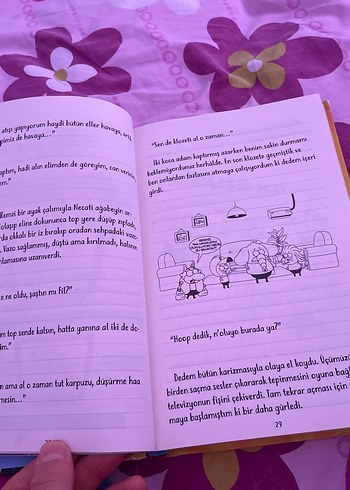 atışı yapıyorum haydi bütün eller havaya, artık
pimiz de havaya..."
aptım, hadi alın elimden de göreyim, can verirsin
im."
llemizi bir ayak çalımıyla Necati ağabeyin ar
olaşıp eline dokununca top yere düşüp zıplad
rda okkalı bir iz bırakıp oradan sehpadaki vazo
Vazo sağlammış, düştü ama kırılmadı, halının
rlamasına uzanıverdi.
te ne oldu, şaştın mı Fil?"
m top sende kalsın, hatta yanına al iki de do
im."
n ama al o zaman tut karpuzu, düşürme haa
mesin..."
"Sen de klozeti al o zaman..."
İki koca adam kaptırmış azarken benim sakin durmamı
beklemiyordunuz herhâlde. En son klozete geçmiştik ve
ben onlardan fazlasını atmaya çalışıyordum ki dedem içeri
girdi.
"Hoop dedik, n'oluyo burada ya?"
Dedem bütün karizmasıyla olaya el koydu. Üçümüzü
birden saçma sesler çıkararak tepinmesini oyuna bağl
televizyonun fişini çekiverdi. Tam tekrar açması için
maya başlamıştım ki bir daha gürledi.
29